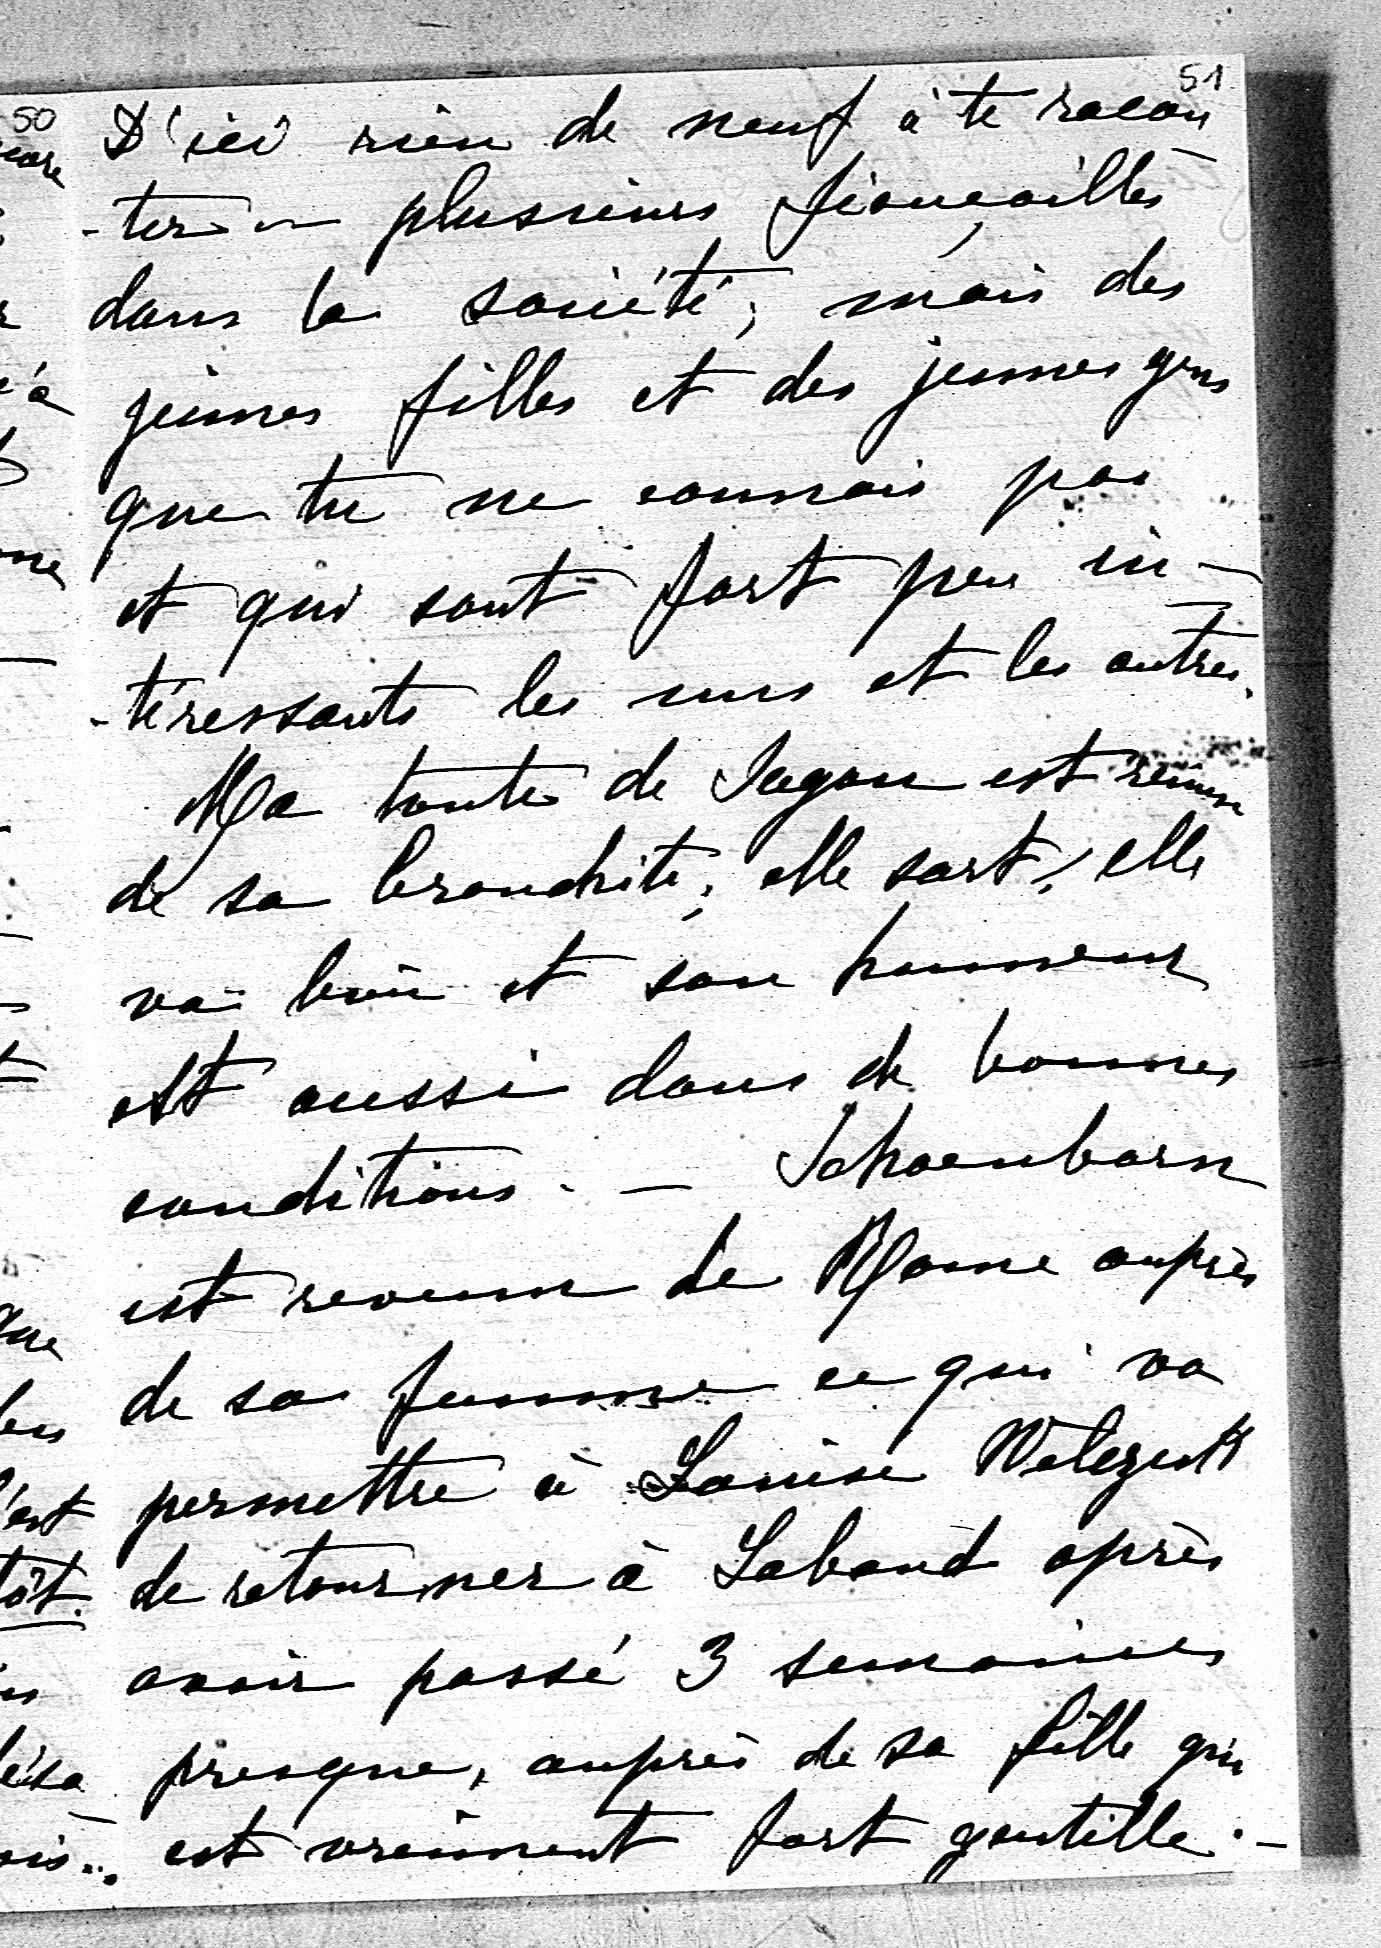 50
51
D'ici rien de neuf à te racon
-ter — plusieurs fiançailles
dans la société, mais des
jeunes filles et des jeunes gens
que tu ne connais pas
et qui sont fort peu in-
-téressants les uns et les autres.
Ma tante de Sagan est remise
de sa bronchite, elle sort, elle
va bien et son humeur
est aussi dans de bonnes
conditions. — Schoenborn
est revenu de Rome auprès
de sa femme ce qui va
permettre à Louise Welczeck
de retourner à Laband après
avoir passé 3 semaines
presque, auprès de sa fille qui
est vraiment fort gentille. —